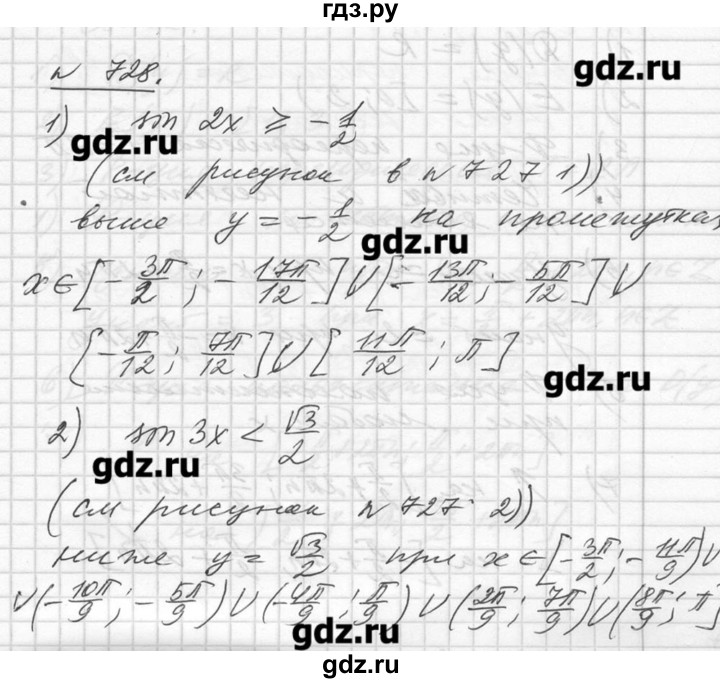 гдз.ру
№ 728.
gdz.ru
1) sin 2x ≥ -1/2
gdz.ru
(см рисунок в №727 1))
выше y = -1/2 на промежутках
gdz.ru
x∈[-3π/2; -17π/12]∪[-13π/12; -5π/12]∪
[-π/12; 7π/12]∪[11π/12; π]
gdz.ru
2) sin 3x < √3/2
gdz.ru
(см рисунок №727 2))
ниже y = √3/2 при x∈[-3π/2; -11π/9)∪
∪(-10π/9; -5π/9)∪(-4π/9; π/9)∪(2π/9; 7π/9)∪(8π/9; π]
gdz.ru
gdz.ru